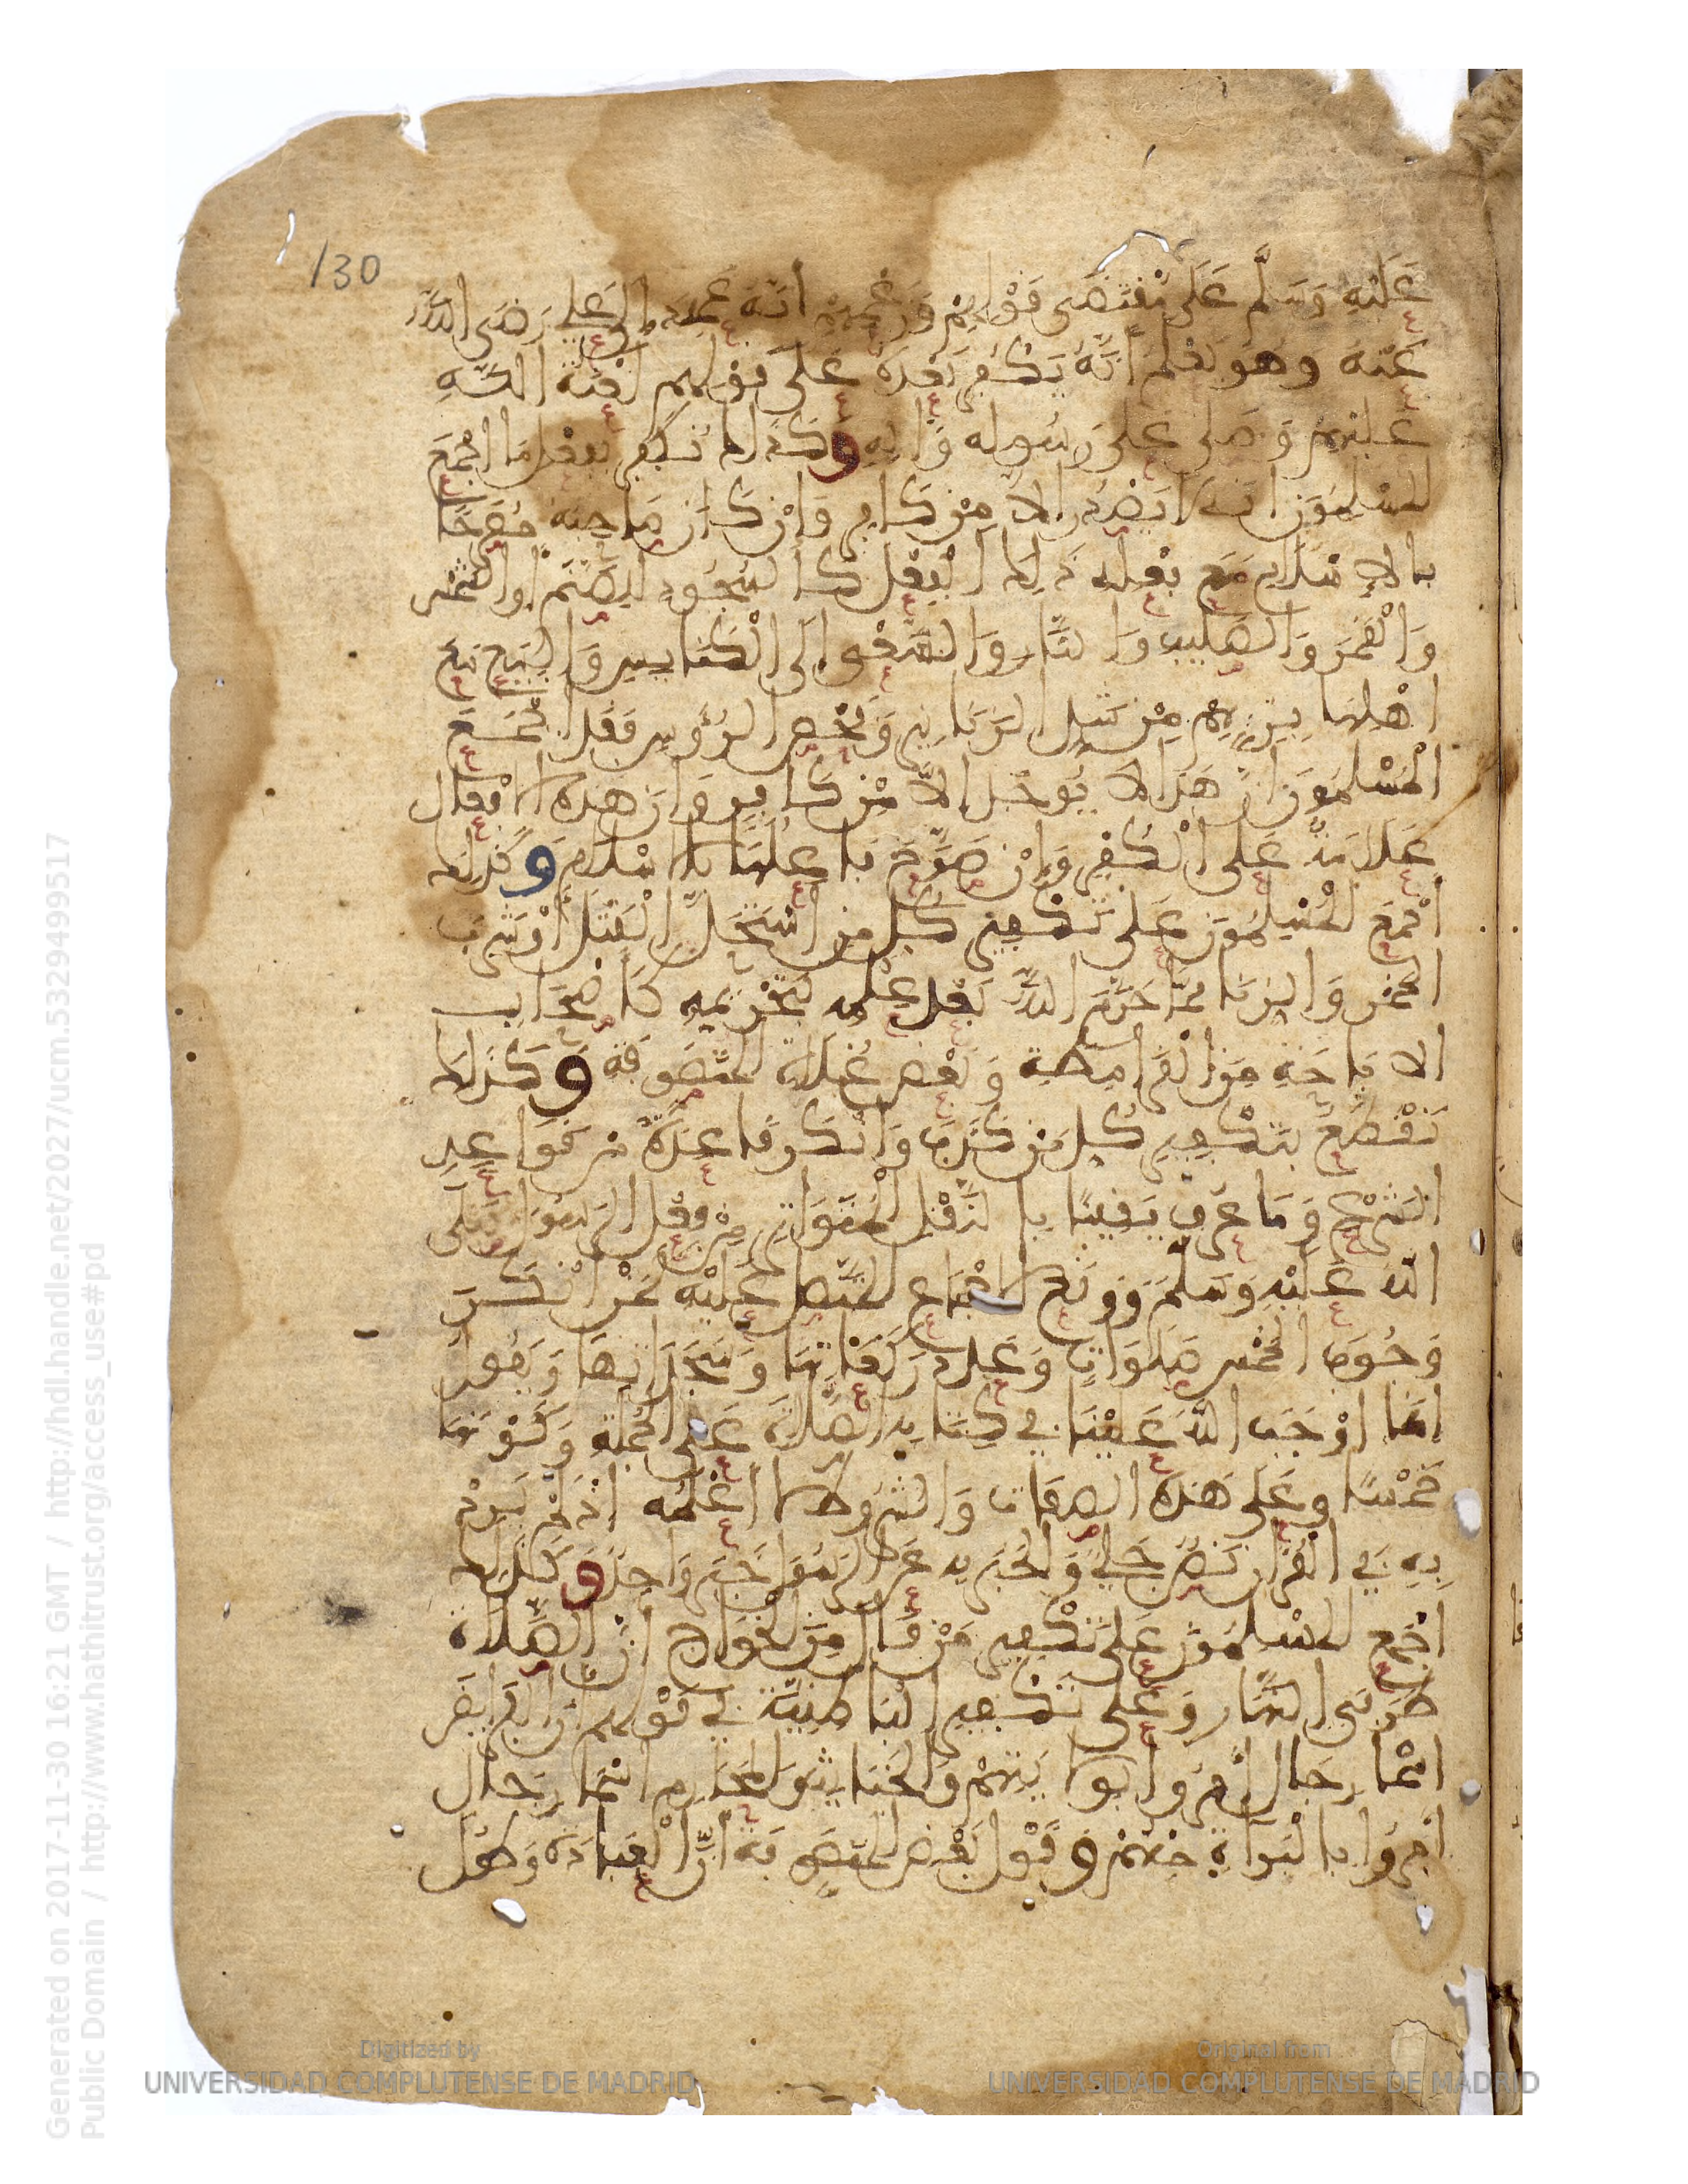 130
عَلَيْهِ وَسَلَّم عَلَى مُقْتَضَى قَوْلِهِمْ وَزَعْمِهِمْ أنَّهُ عَهِدَ إلى عَلِي رَضِيَ اللَّه
عَنْهُ وَهُوَ يَعْلَمُ أنَّهُ يَكْفُرُ بَعْدَهُ عَلَى قَوْلِهِمْ لَعْنَةُ اللَّهِ
عَلَيْهِمْ وَصَلَّى عَلَى رَسُولِهِ وَآلِهِ وَكَذَلِكَ نُكَفِّرُ بِفِعْلٍ مَا أَجْمَعَ
المسْلِمُونَ أنَّهُ لا يَصْدُر إلاَّ مِنْ كَافِرٍ وَإنْ كَانَ صَاحِبُهُ مُصَرِّحًا
بالإسْلَامِ مَعَ فِعْلِهِ ذَلِكَ الْفِعْل كَالسُّجُودِ لِلصَّنَمِ أو الشَّمْسِ
وَالْقَمَرِ وَالصَّلِيبِ وَالنَّارِ وَالسَّعْيِ إلَى الْكَنَايِسِ وَالْبِيَعِ مَعَ
أهْلِهَا بِزِيِّهِمْ مِنْ شَدِّ الزَّنَانِيرِ وَفَحْصِ الرُّؤُوسِ فَقَد أجْمَعَ
الْمُسْلِمُونَ أنَّ هَذَا لا يُوجَدُ إلاَّ مِنْ كَافِرٍ وَأنَّ هَذِهِ الافْعَالَ
عَلَامَةٌ عَلَى الْكُفْرِ وَإنْ صَرَّحَ فَاعِلُهَا بالاسْلَامِ وَكَذَلِكَ
أجْمَعَ المُسْلِمُونَ عَلَى تَكْفِيرِ كُلِّ مَنِ اسْتَحَلَّ الْقَتْلَ أوْ شُرْبَ
الخمْرِ وَالزِّنَا مِمَّا حَرَّمَ اللَّه بَعْدَ عِلْمِهِ بِتَحْرِيمِهِ كَأصْحَابِ
الابَاحَةِ مِنَ الْقَرَامِطَةِ وَبَعْضِ غُلَاةِ المُتَصَوِّفَةِ وَكَذَلِكَ
نَقْطَعُ بِتَكْفِيرِ كُلِّ مَنْ كَذَّبَ وَأنْكَرَ قَاعِدَةً مِنْ قَوَاعِدِ
الشَّرْعِ وَمَا عُرِفَ يَقِينًا بِالنَّقْلِ الْمُتَوَاتِرِ مِنْ فِعْلِ الرَّسُولِ صَلَّى
اللَّه عَلَيْهِ وَسَلَّمَ وَوَقَعَ الاجْمَاع المُتَّصِلُ عَلَيْهِ كَمَنْ أنْكَرَ
وُجُوبَ الخَمْسِ صَلَوَاتٍ وَعَدَدَ رَكَعَاتِهَا وَسَجَدَاتِهَا وَيَقُولُ
إنّمَا أوْجَبَ اللَّهُ عَلَيْنَا فِي كِتَابِهِ الصَّلَاةَ عَلَى الجُمْلَةِ وَكَوْنِهَا
خَمْسًا وَعَلَى هَذِهِ الصِّفَاتِ وَالشُّرُوطِ لا أعْلَمُهُ إذْ لَمْ يَرِدْ
بِهِ فِي الْقُرْآنِ نَصٌّ جَلِيٌّ وَالخَبَرُ بِهِ عَنِ الرَّسُولِ خَبَرُ وَاحِدٍ وَكَذَلِكَ
أجْمَعَ المسْلِمُونَ عَلَى تَكْفِيرِ مَنْ قَالَ مِنَ الخَوَارِجِ إنَّ الصَّلَاةَ
طَرَفَيِ النَّهَارِ وَعَلَى تَكْفِيرِ الْبَاطِنِيَّةِ فِي قَوْلِهِمْ إنَّ الفَرَايِضَ
أسْمَاءُ رِجَالٍ أُمِرُوا بِوَلَايَتِهِمْ وَالخَبَايِثَ وَالمحَارِم أسْمَاءُ رِجَالٍ
أُمِرُوا بِالْبَرَاءَةِ مِنْهُمْ وَقَوْلِ بَعْضِ المُتَصَوِّفَةِ إنَّ الْعِبَادَةَ وَطُولَ